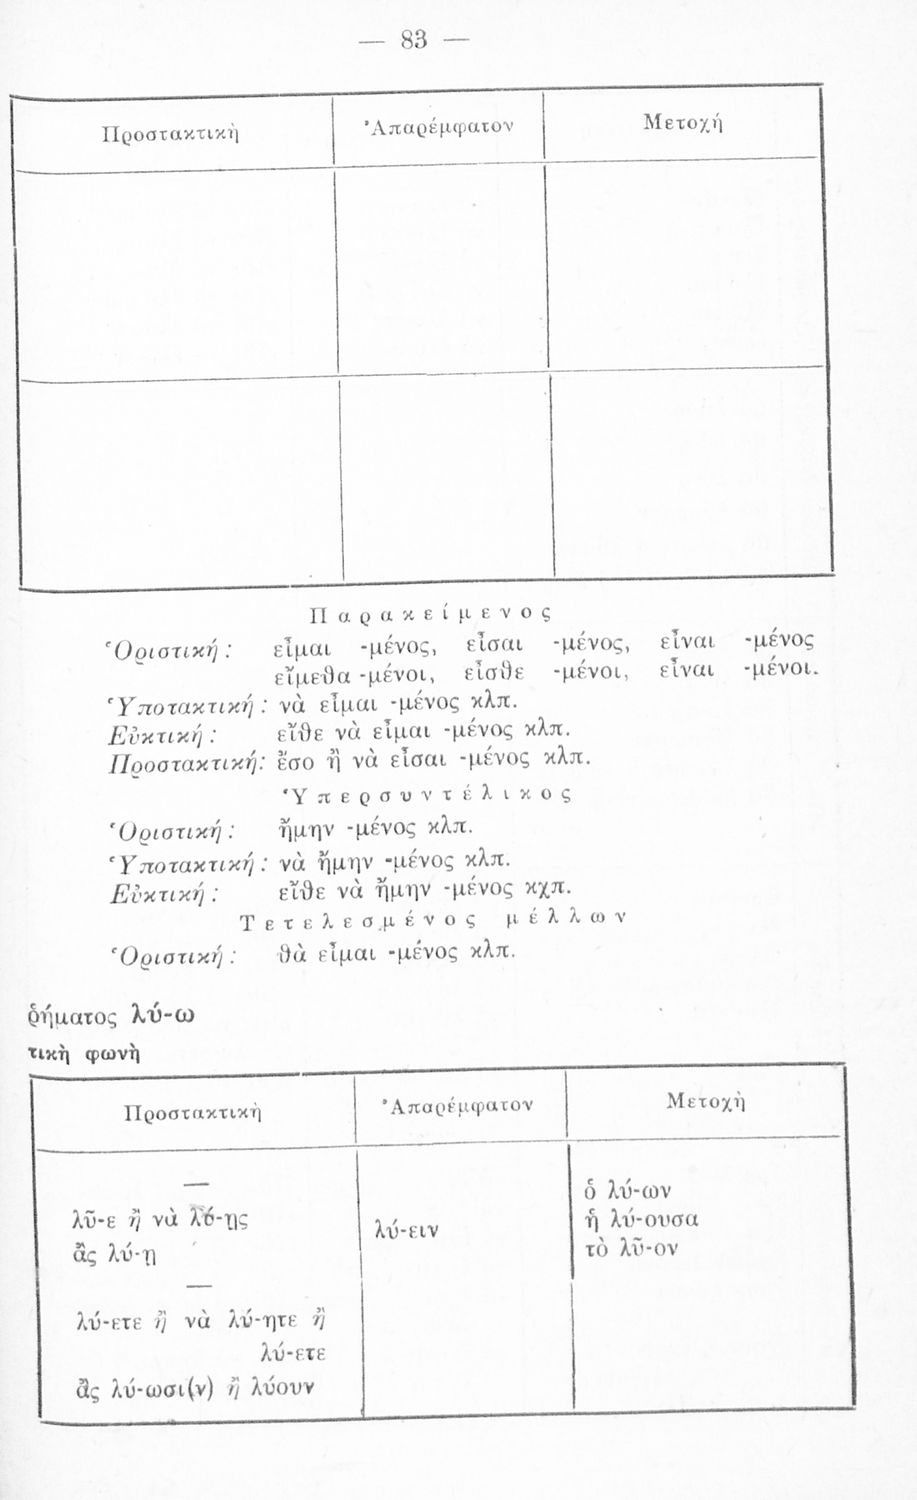 — 83 —
Προστακτικὴ Ἀπαρέμφατον Μετοχή
Παρακείμενος
Ὁριστική: εἶμαι -μένος, εἶσαι -μένος, εἶναι -μένος
εἴμεθα -μένοι, εἶσθε -μένοι, εἶναι -μένοι.
Ὑποτακτική: νὰ εἶμαι -μένος κλπ.
Εὐκτική: εἴθε νὰ εἶμαι -μένος κλπ.
Προστακτική: ἔσο ἢ νὰ εἶσαι -μένος κλπ.
Ὑπερσυντέλικος
Ὁριστική: ἤμην -μένος κλπ.
Ὑποτακτική: νὰ ἤμην -μένος κλπ.
Εὐκτική: εἴθε νὰ ἤμην -μένος κχπ.
Τετελεσμένος μέλλων
Ὁριστική: θὰ εἶμαι -μένος κλπ.
ῥήματος λύ-ω
τικὴ φωνὴ
Προστακτικὴ Ἀπαρέμφατον Μετοχὴ
—
ὁ λύ-ων
λῦ-ε ἢ νὰ λύ-ῃς λύ-ειν ἡ λύ-ουσα
ἂς λύ-ῃ τὸ λῦ-ον
—
λύ-ετε ἢ νὰ λύ-ητε ἢ
λύ-ετε
ἂς λύ-ωσι(ν) ἢ λύουν